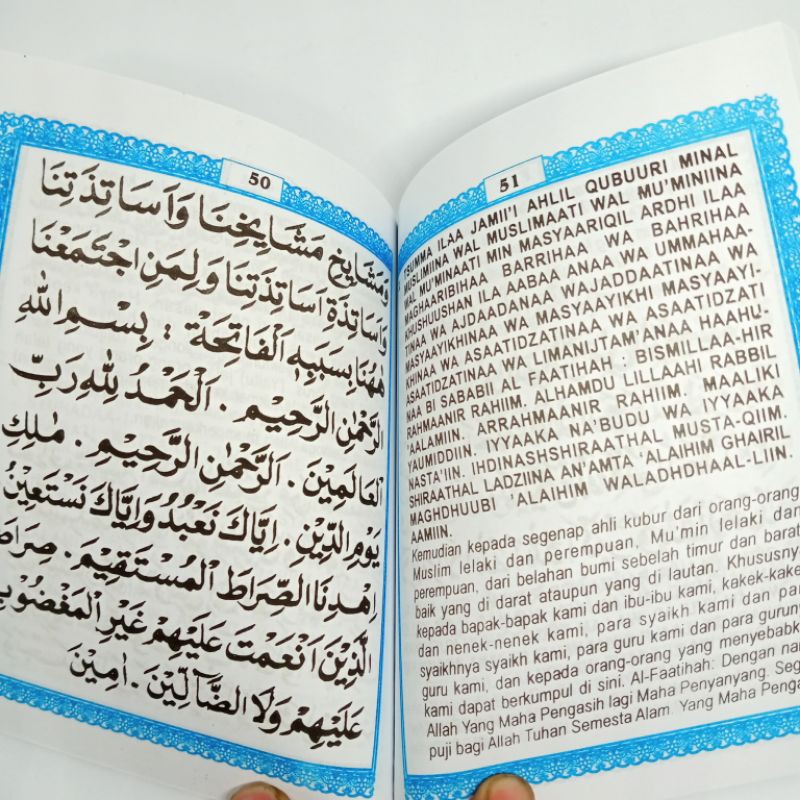 50
وَمَشَايِخِ مَشَايِخِنَا وَاَسَاتِذَتِنَا
وَاَسَاتِذَةِ اَسَاتِذَتِنَا وَلِمَنِ اجْتَمَعْنَا
هٰهُنَا بِسَبَبِهِ اَلْفَاتِحَةْ : بِسْمِ اللهِ
الرَّحْمٰنِ الرَّحِيْمِ . اَلْحَمْدُ لِلّٰهِ رَبِّ
الْعَالَمِيْنَ . اَلرَّحْمٰنِ الرَّحِيْمِ . مٰلِكِ
يَوْمِ الدِّيْنِ . اِيَّاكَ نَعْبُدُ وَاِيَّاكَ نَسْتَعِيْنُ
اِهْدِنَا الصِّرَاطَ الْمُسْتَقِيْمَ . صِرَاطَ
الَّذِيْنَ اَنْعَمْتَ عَلَيْهِمْ غَيْرِ الْمَغْضُوْبِ
عَلَيْهِمْ وَلَا الضَّآلِّيْنَ . اٰمِيْنَ
51
TSUMMA ILAA JAMII'I AHLIL QUBUURI MINAL
MUSLIMIINA WAL MUSLIMAATI WAL MU'MINIINA
WAL MU'MINAATI MIN MASYAARIQIL ARDHI ILAA
MAGHAARIBIHAA BARRIHAA WA BAHRIHAA
KHUSHUUSHAN ILA AABAA ANAA WA UMMAHAA-
TINAA WA AJDAADANAA WAJADDAATINAA WA
MASYAAYIKHINAA WA MASYAAYIKHI MASYAAYI-
KHINAA WA ASAATIDZATINAA WA ASAATIDZATI
ASAATIDZATINAA WA LIMANIJTAM'ANAA HAAHU-
NAA BI SABABII AL FAATIHAH : BISMILLAA-HIR
RAHMAANIR RAHIIM. ALHAMDU LILLAAHI RABBIL
'AALAMIIN. ARRAHMAANIR RAHIIM. MAALIKI
YAUMIDDIIN. IYYAAKA NA'BUDU WA IYYAAKA
NASTA'IIN. IHDINASHSHIRAATHAL MUSTA-QIIM.
SHIRAATHAL LADZIINA AN'AMTA 'ALAIHIM GHAIRIL
MAGHDHUUBI 'ALAIHIM WALADHDHAAL-LIIN.
AAMIIN.
Kemudian kepada segenap ahli kubur dari orang-orang
Muslim lelaki dan perempuan, Mu'min lelaki dan
perempuan, dari belahan bumi sebelah timur dan barat
baik yang di darat ataupun yang di lautan. Khususny
kepada bapak-bapak kami dan ibu-ibu kami, kakek-kake
dan nenek-nenek kami, para syaikh kami dan par
syaikhnya syaikh kami, para guru kami dan para gurun
guru kami, dan kepada orang-orang yang menyebabk
kami dapat berkumpul di sini. Al-Faatihah: Dengan nam
Allah Yang Maha Pengasih lagi Maha Penyanyang. Seg
puji bagi Allah Tuhan Semesta Alam. Yang Maha Penga